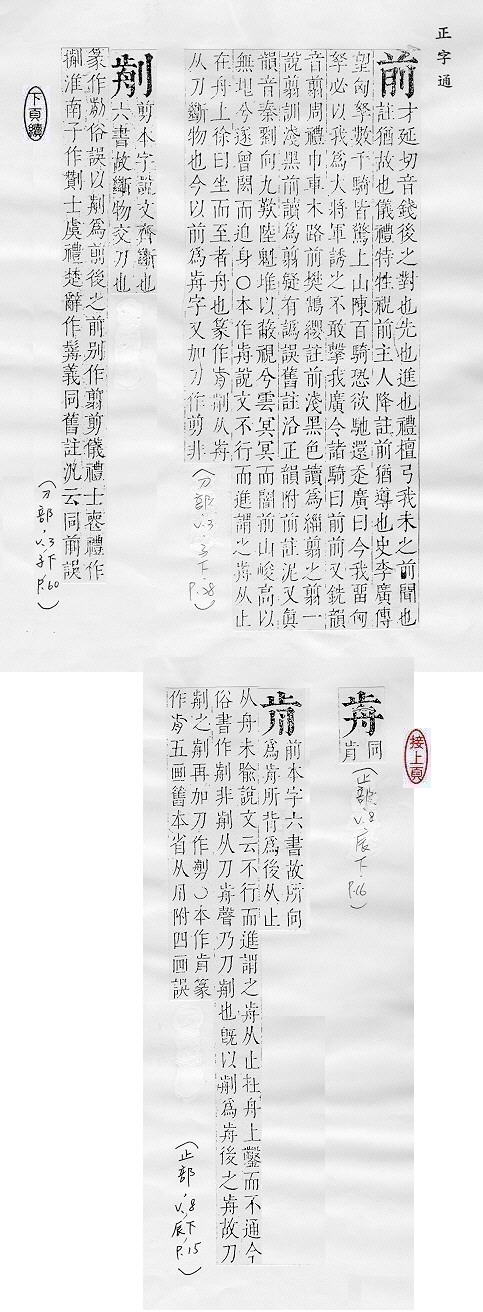 正字通
前
才延切音錢後之對也先也進也禮檀弓我未之前聞也
註猶故也儀禮特牲祝前主人降註前猶導也史李廣傳
望匈孥數千騎皆驚上山陳百騎恐欲馳還走廣曰今我畱匈
孥必以我爲大將軍誘之不敢擊我廣令諸騎曰前前又銑韻
音翦周禮巾車木路前樊鵠纓註前淺黑色讀爲緇翦之翦一
說翦訓淺黑前讀爲翦疑有譌誤舊註沿正韻附前註泥又眞
韻音秦劉向九歎陸魁堆以蔽視兮雲冥冥而闇前山峻高以
無垠兮遂曾閎而迫身○本作歬說文不行而進謂之歬从止
在舟上徐曰坐而至者舟也篆作歬剪从歬
从刀斷物也今以前爲歬字又加刀作剪非
(刀部,v.3子下,p.58)
剪本字說文齊斷也
六書故斷物交刀也
篆作俗誤以爲前後之前别作翦剪儀禮士喪禮作
揃淮南子作士虞禮楚辭作鬋義同舊註泥云同前誤
(刀部,v.3子下,p.60)
下頁續
接上頁
歬
同
(止部,v.8辰下,p.16)
前本字六書故所向
爲歬所背爲後从止
从舟未瑜說文云不行而進謂之歬从止在舟上鑿而不通今
俗書作非从刀歬聲乃刀也旣以爲歬後之歬故刀
之再加刀作剪○本作篆
作五画舊本省从月附四画誤
(止部,v.8辰下,p.15)